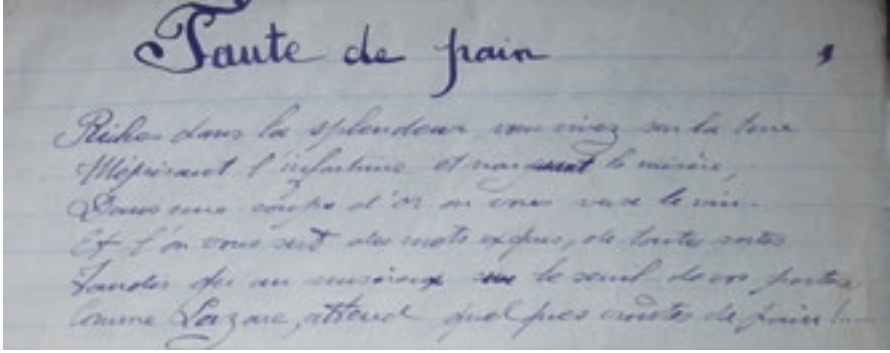 Faute de pain
Riches dans la splendeur, vous vivez sur la terre
Méprisant l'infortune et narguant la misère,
Dans une coupe d'or on vous verse le vin.
Et l'on vous sert des mets exquis, de toutes sortes
Tandis qu'un miséreux sur le seuil de vos portes
Comme Lazare, attend quelques croûtes de pain !...